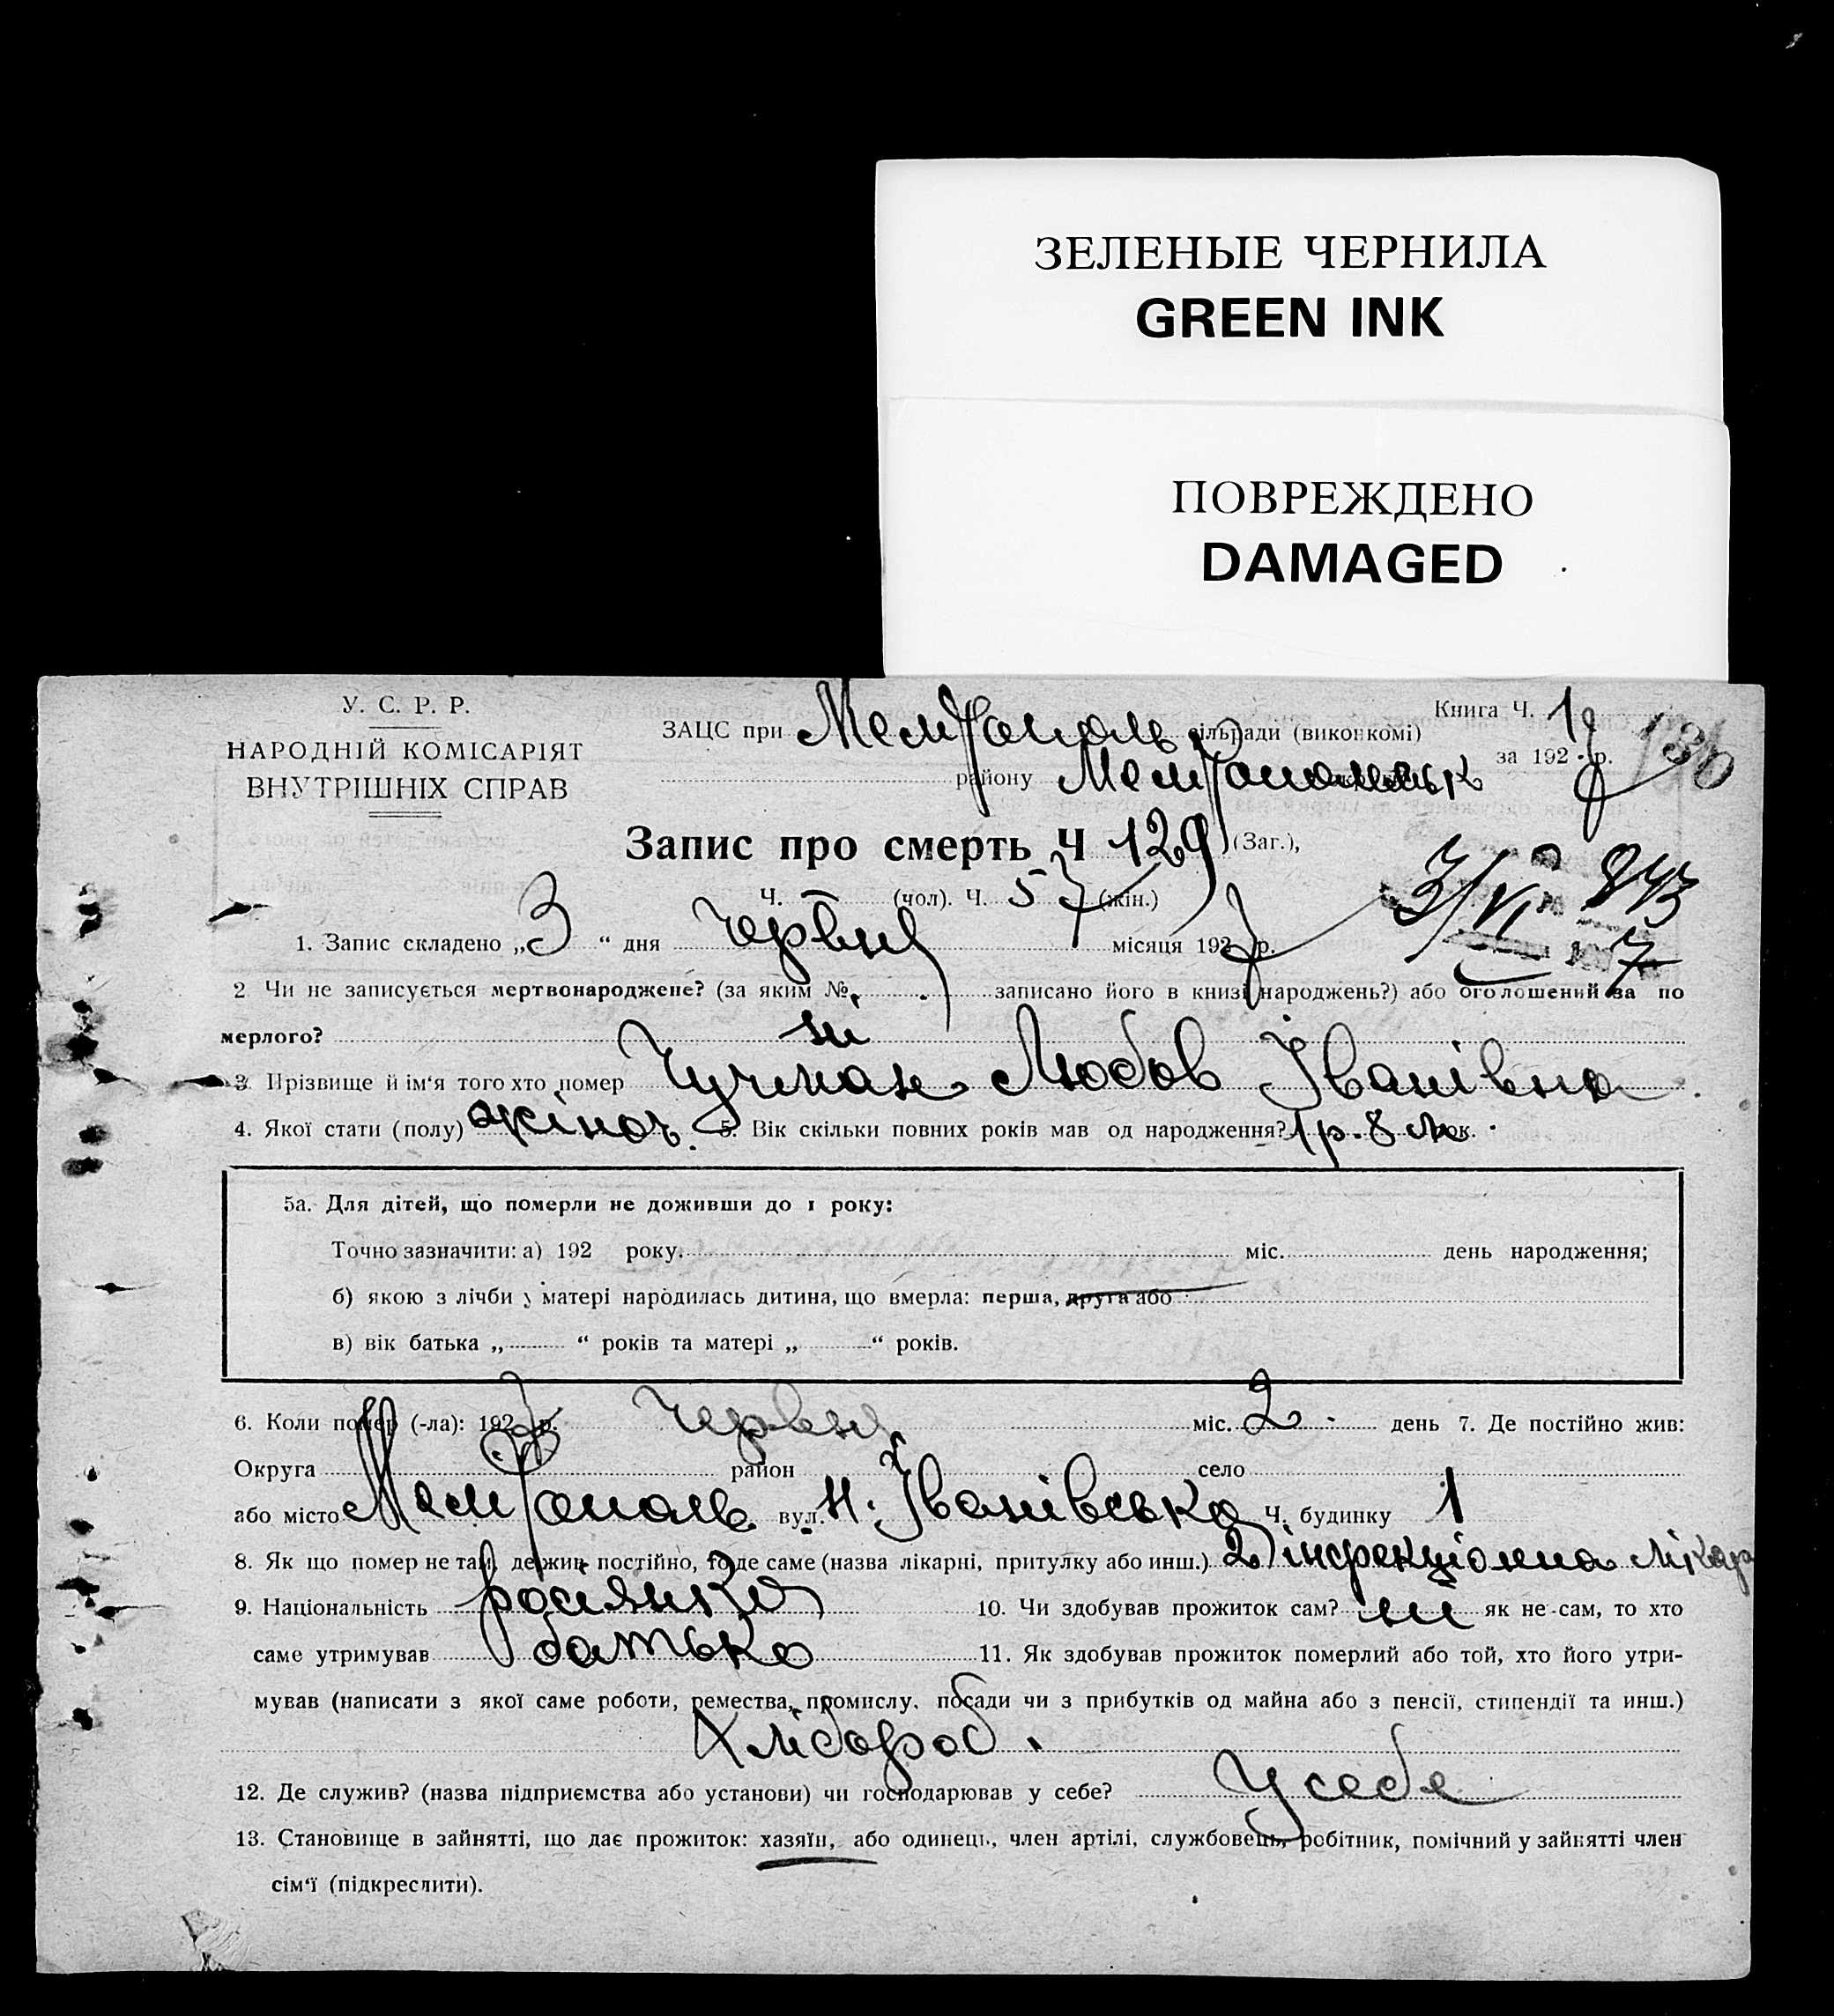 ЗЕЛЕНЫЕ ЧЕРНИЛА
GREEN INK
ПОВРЕЖДЕНО
DAMAGED
У. С. Р. Р.
НАРОДНІЙ КОМІСАРІЯТ
ВНУТРІШНІХ СПРАВ
ЗАЦС при Мелітополь сільради (виконкомі)
Книга Ч. 1
району
за 1927 р.
130
Запис про смерть Ч 129 (Заг.),
Ч. — (чол). Ч. 57 (жін.)
3/VI 843
7
1. Запис складено „3 “ дня червня місяця 1927 р.
2 Чи не записується мертвонароджене? (за яким № записано його в книзі народжень?) або оголошений за по
мерлого? ні
3 Прізвище й ім'я того хто помер Любов Іванівна
4. Якої стати (полу) жіноч. 5. Вік скільки повних років мав од народження? 1 р. 8 м. рок.
5а. Для дітей, що померли не доживши до 1 року:
Точно зазначити: а) 192 року. міс. день народження;
б) якою з лічби у матері народилась дитина, що вмерла: перша, друга або
в) вік батька „ “ років та матері „ “ років.
6. Коли помер (-ла): 1927 р. червня міс. 2 день 7. Де постійно жив:
Округа район село
або місто Мелітополь вул. Н. Іванівська Ч. будинку 1
8. Як що помер не там, де жив постійно, то де саме (назва лікарні, притулку або инш.) 2 інфекціонна лікар
9. Національність росіянка 10. Чи здобував прожиток сам? ні як не сам, то хто
саме утримував батько 11. Як здобував прожиток померлий або той, хто його утри-
мував (написати з якої саме роботи, ремества, промислу, посади чи з прибутків од майна або з пенсії, стипендії та инш.)
Хлібороб.
12. Де служив? (назва підприємства або установи) чи господарював у себе? У себе
13. Становище в зайнятті, що дає прожиток: хазяїн, або одинець, член артілі, службовець, робітник, помічний у зайнятті член
сім'ї (підкреслити).